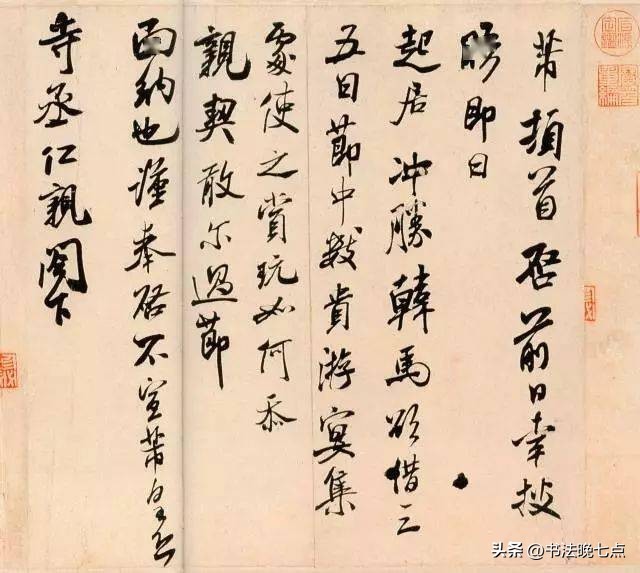 芾頓首啓前日幸披
即日
起居冲勝韓馬欲借三
五日節中數貴游宴集
處使之賞玩如何忝
親契敢尔過節
面納也謹奉啓不宣芾皇恐
寺丞仁親閣下
头条 @书法晚七点